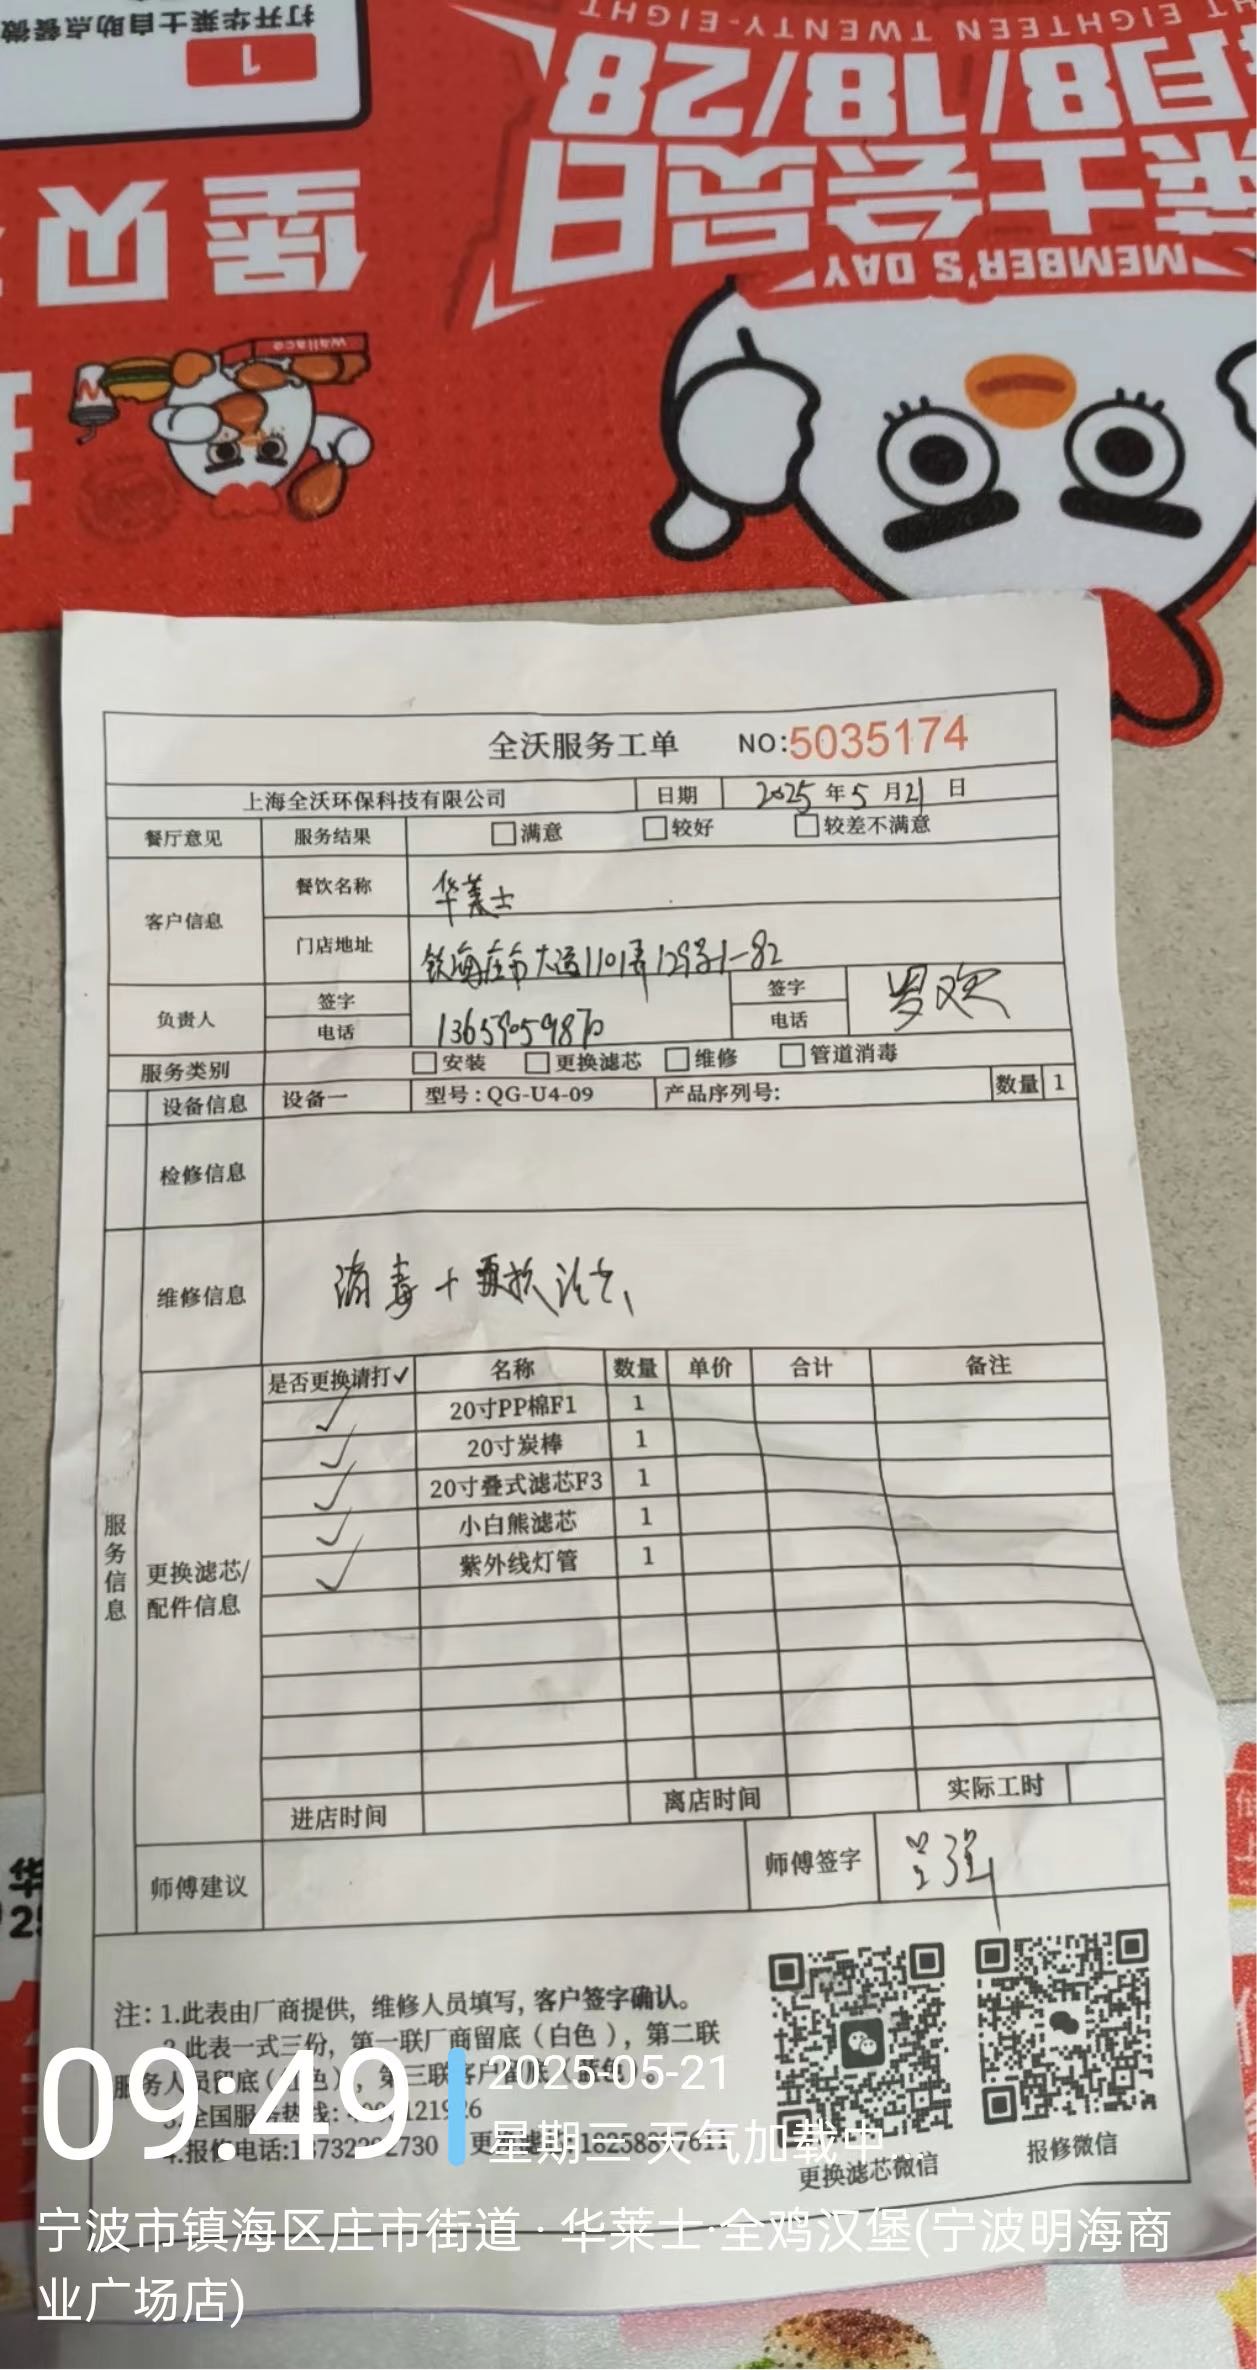 打开华莱士自助点餐微
1
堡贝
THIGIE-YTNEWT NEETHGIE TH
月8/18/28
莱士会员日
MEMBER'S DAY
Wallace
全沃服务工单 NO:5035174
上海全沃环保科技有限公司 日期 2025年5月21日
餐厅意见 服务结果 满意 较好 较差不满意
客户信息 餐饮名称 华莱士
门店地址 镇海庄市大道1101弄129号1-82
负责人 签字 签字 罗欢
电话 13659059870 电话
服务类别 安装 更换滤芯 维修 管道消毒
设备信息 设备一 型号:QG-U4-09 产品序列号: 数量 1
检修信息
维修信息 消毒+更换滤芯
服务信息
更换滤芯/配件信息
是否更换请打✓ 名称 数量 单价 合计 备注
✓ 20寸PP棉F1 1
✓ 20寸炭棒 1
✓ 20寸叠式滤芯F3 1
✓ 小白熊滤芯 1
✓ 紫外线灯管 1
进店时间 离店时间 实际工时
师傅建议 师傅签字
注:1.此表由厂商提供,维修人员填写,客户签字确认。
2.此表一式三份,第一联厂商留底(白色),第二联
服务人员留底(红色),第三联客户留底(蓝色)。
3.全国服务热线:
4.报修电话:
更换滤芯微信 报修微信
09:49
2025-05-21
星期三 天气加载中...
宁波市镇海区庄市街道·华莱士·全鸡汉堡(宁波明海商
业广场店)